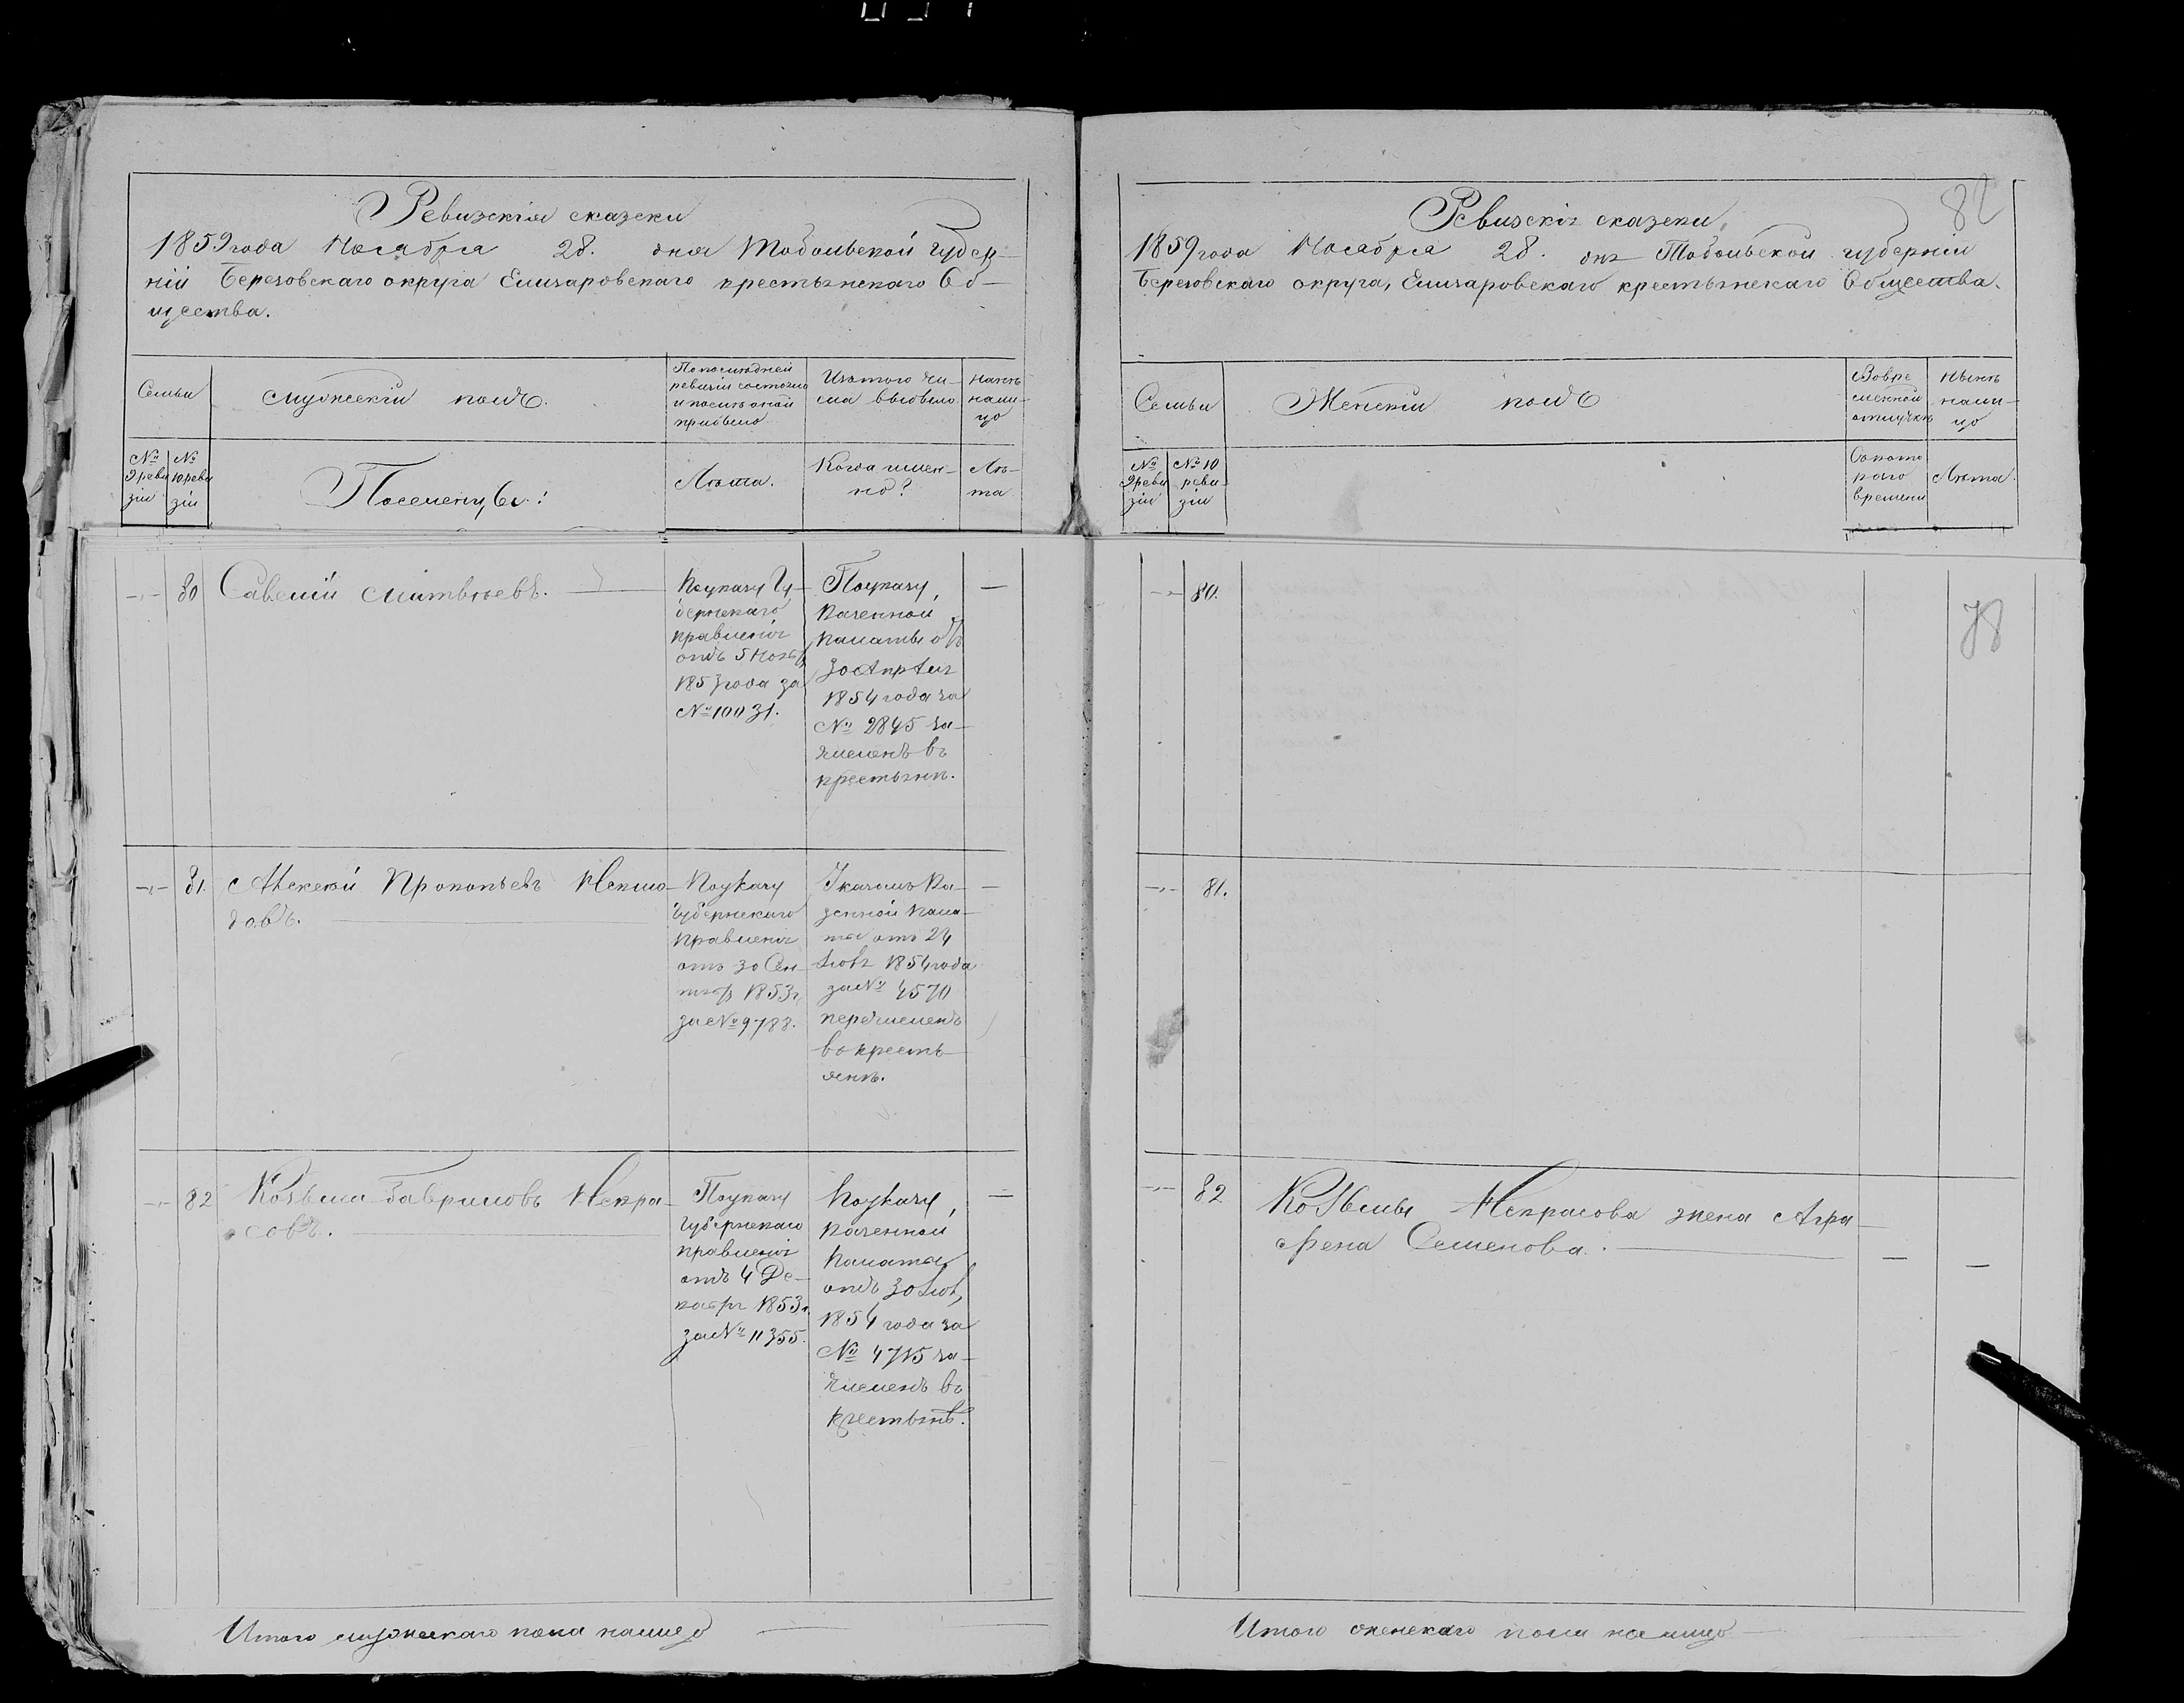 Ревизскія сказки
1859 года Ноября 28. дня Тобольской губер-
ніи Березовскаго округа Елизаровскаго крестьянскаго Об-
щества.
Семьи
мужескій полъ.
По последней
ревизіи состояло
и после оной
прибыло
Изъ того чи-
сла выбыло
нынѣ
нали-
цо
№
9 реви
зіи
№
10 реви
зіи
Поселенцы:
Лѣта.
Когда имен-
но?
Лѣ-
та
80 Савелій Матвѣевъ.
По указу Гу-
бернскаго
правленія
отъ 5 Нояб
1853 года за
№ 10031.
По указу
Казенной
палаты отъ
30 Апрѣля
1854 года за
№ 2845 за-
численъ въ
крестьяне.
—
81. Алексѣй Прокопьевъ
По указу
Губернскаго
правленія
отъ 30 Сен-
тяб 1853 г.
за № 9788.
Указомъ Ка-
зенной пала-
ты отъ 24
1854 года
за № 4570
перечисленъ
въ кресть-
яне.
—
82 Козьма Гавриловъ Некра-
совъ.
По указу
Губернскаго
правленія
отъ 4 Де-
кабря 1853 г.
за № 11355.
По указу
Казенной
Палаты
отъ 30
1854 года за
№ 4715 за-
численъ въ
крестьяне.
—
Итого мужескаго пола налицо
82
Ревизскія сказки
1859 года Ноября 28. дня Тобольской губерніи
Березовскаго округа, Елизаровскаго крестьянскаго Общества.
Семьи
Женскій полъ
Во вре
менной
отлучкѣ
нынѣ
нали-
цо
№
9 реви
зіи
№ 10
реви-
зіи
Съ кото
раго
времени
Лѣта.
80.
78
81.
82 Козьмы Некрасова жена Агра-
фена Семенова.
—
—
Итого женскаго пола налицо